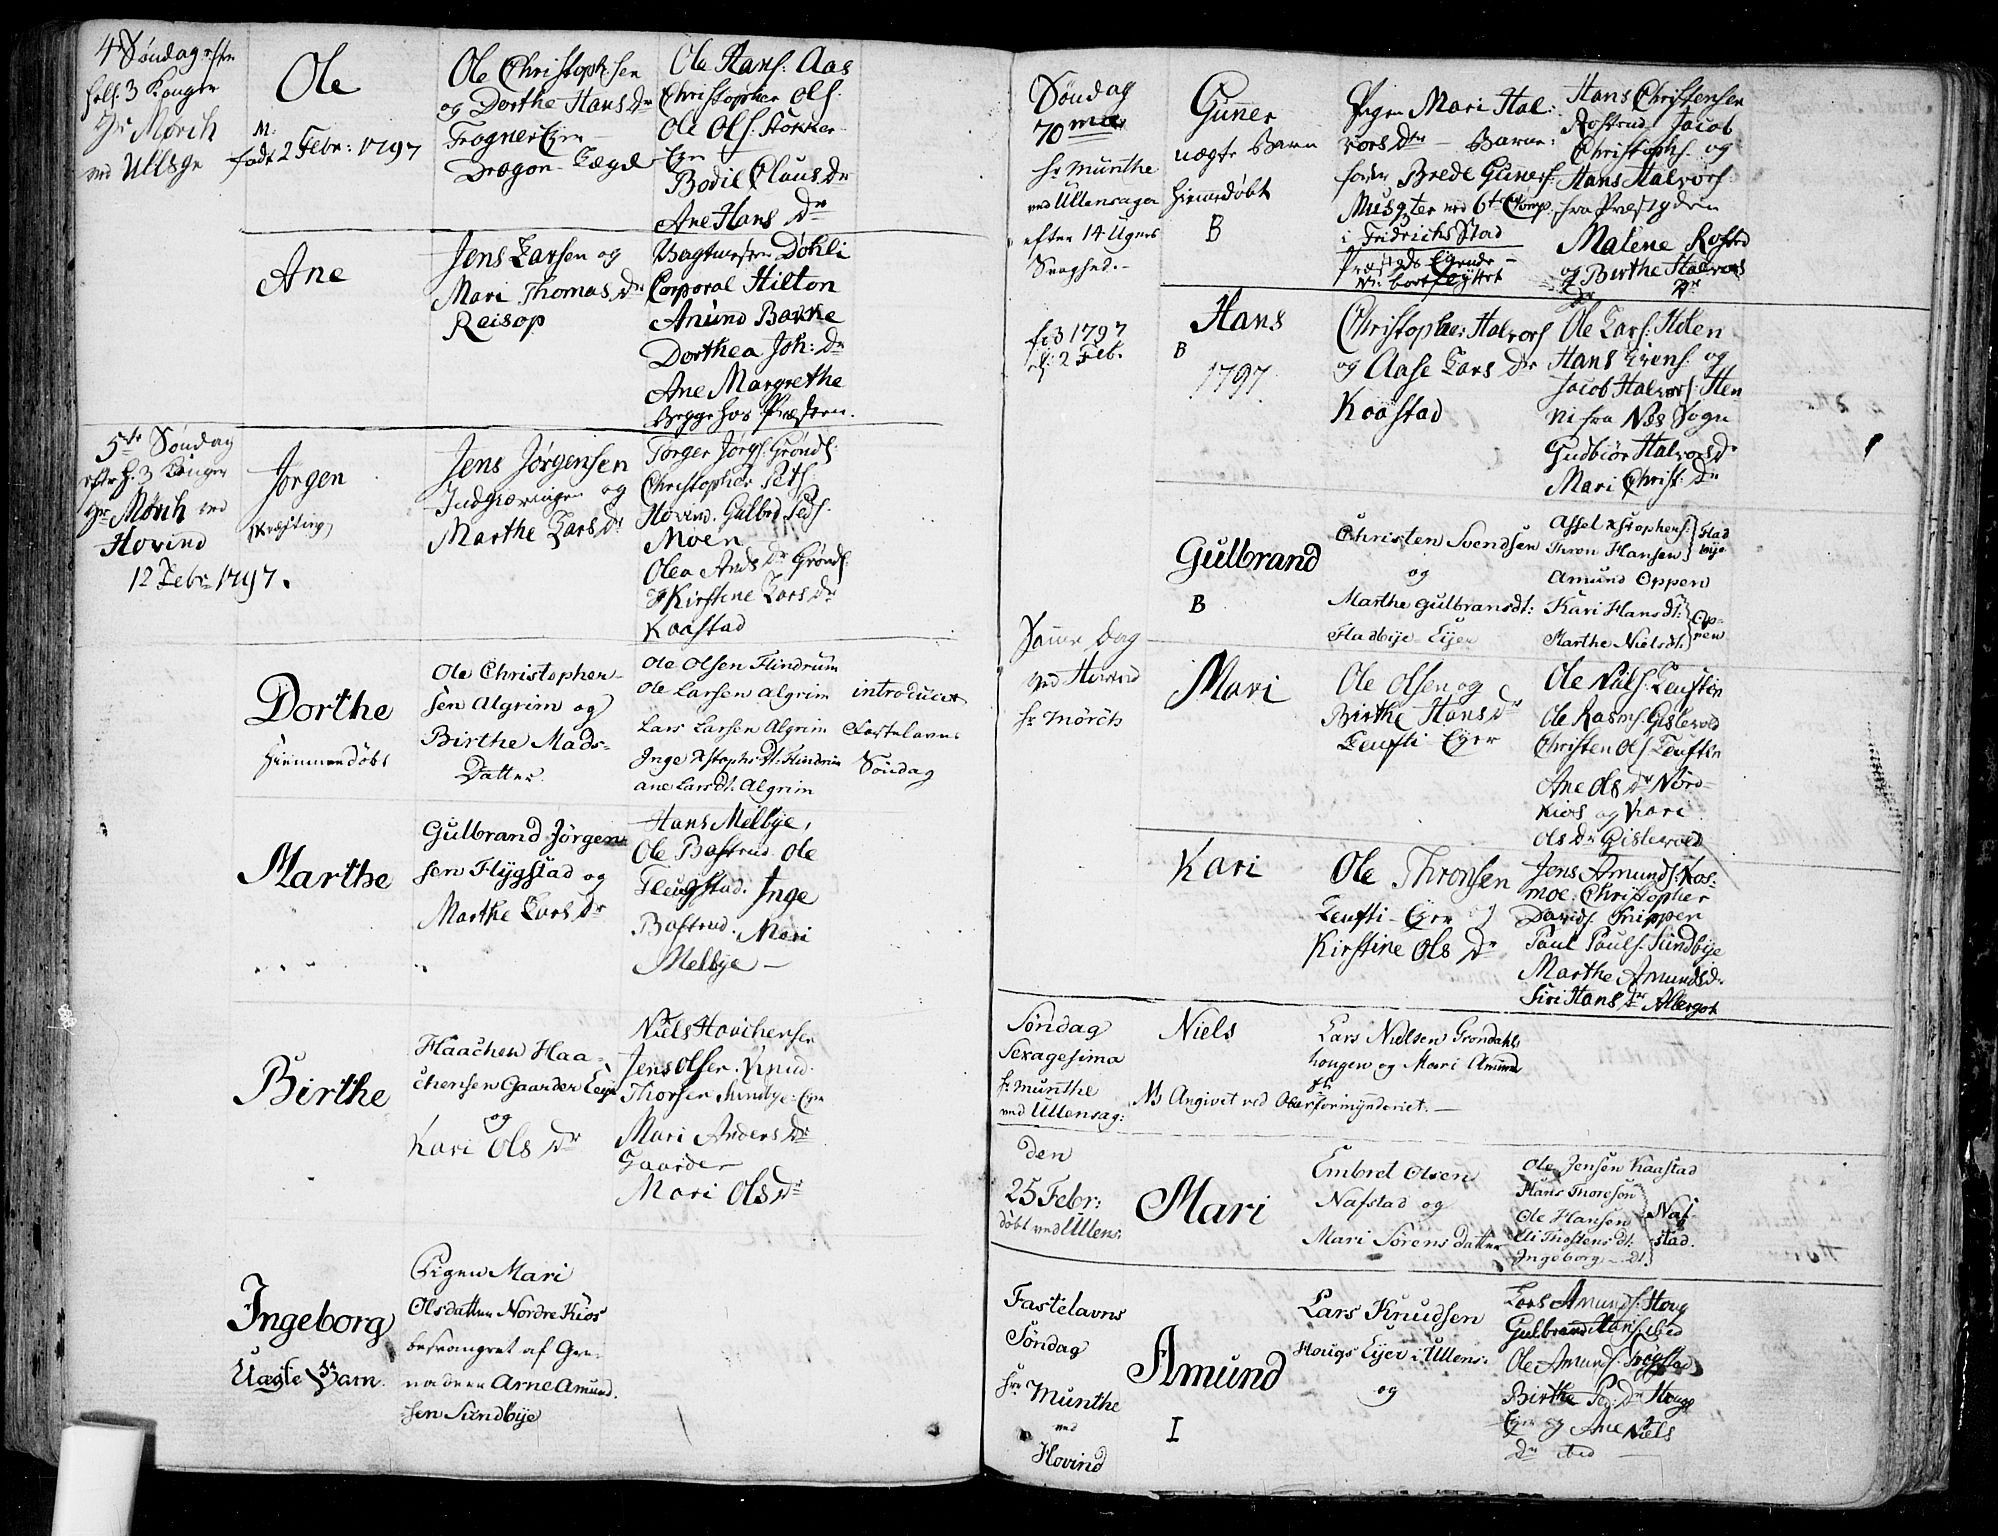 4de Søndag efter
hell. 3 Konger
Hr Mørch
ved Ullsgr
Ole
M.
født 2 Febr: 1797
Ole Christophsen
og Dorthe Hans Dr
Frogner Eyer
Dragon Lægd
Ole Hans: Aas
Christopher Ols:
Ole Ols: Stokker
Eyr
Bodil Claus Dr
Ane Hans Dr
Ane
Jens Larsen og
Mari Thomas Dr
Reisop
Vagtmester Døhli
Corporal Hilton
Amund Bakke
Dorthea Joh: Dr
Ane Margrethe
begge hos Præsten.
5te Søndag
efter h. 3 Konger
Hr Mørch ved
Hovind
12 Febr 1797.
Jørgen
Jens Jørgensen
og
Marthe Lars Dr
Torger Jørgs. Grønds.
Christopher Peds.
Hovind. Gulbrd Peds.
Moen
Olea Ands Dr Grønds.
Kirstine Lars Dr
Kaastad
Dorthe
Hiemmedøbt
Ole Christopher-
sen Algrim og
Birthe Mads-
Datter
Ole Olsen Flindrum
Ole Larsen Algrim
Lars Larsen Algrim
Inge Xstophs Dt. Flindrum
ane Larsdt. Algrim
introducert
Fastelavns
Søndag
Marthe
Gulbrand Jørgen-
sen Flygstad og
Marthe Lars Dr
Hans Melbye,
Ole Bastrud. Ole
Fleugstad. Inge
Bastrud. Mari
Melbye
Birthe
Haachen Haa-
chensen Gaarder Eye
og
Kari Ols Dr
Niels Hovichensen
Jens Olsen. Knud
Thorsen Sundbye-Eyr
Mari Anders Dr
Gaarder
Mari Ols Dr
Ingeborg
Uægte Barn
Pigen Mari
Olsdatter Nordre Kios
besvangret af Gre-
naderer Arne Amund-
sen Sundbye
Søndag
70ma
hr Munthe
ved Ullensager
efter 14 Ugers
Svaghed.
Guner
uægte Barn
hiemedøbt
B
Pigen Mari Hal-
vors Dtr - Barne-
fader Brede Guners:
Musqter ved 6te Comp.
i Fridrichs Stad
Præstgds Eyende -
nu bortflyttet
Hans Christensen
Rostrud Jacob
Christophs. og
Hans Halvors.
fra Præstgden
Malene Rostrd
og Birthe Halvors
Dr
1797
2 Feb.
Hans
B
1797.
Christopher Halvors
og Aase Lars Dr
Kaastad
Ole Lars: Hilen
Hans Evens: og
Jacob Halvors: Hen
ni fra Næs Sogn
Gudbiør Halvors Dr
Mari Christ: Dr
Gulbrand
B
Christen Svendsen
og
Marthe gulbransdt:
Fladbye-Eyer
Assel Xstophers.
Thron Hansen
Flad
bye
Amund Oppen
Kari Hansdt:
Marthe Nielsdt:
Op-
pen
Same Dag
ved Hovind
hr Mørch
Mari
Ole Olsen og
Birthe Hans Dr
Leufti-Eyer
Ole Niels. Leuftin
Ole Rasms. Gislevold
Christen Ols Leuftin
Ane Ols Dr Nord-
Kios og Kari
Ols Dr Gislevold
Kari
Ole Thronsen
Leufti-Eyer og
Kirstine Ols Dr
Jens Amunds. Kos-
moe. Christopher
Davids. Knipper
Paul Pauls. Sundbye
Marthe Amunds Dr
Siri Hans Dr Albergot
Søndag
Sexagesima
hr Munthe
ved Ullensag:
Niels
Lars Nielsen Grøndahls
hougen og Mari Amund
NB Angivet ved Oberformynderiet.
den
25 Febr:
døbt ved Ullens:
Mari
Embret Olsen
Nafstad og
Mari Sørens datter
Ole Jensen Kaastad
Hans Thoresøn
Ole Hansen
Eli Thostensdt:
Ingeborg - dt
Naf-
stad.
Fastelavns
Søndag
Hr Munthe
ved
Hovind
Amund
I
Lars Knudsen
Hougs Eyer i Ullens:
og
Lars Amunds: Houg
Gulbrand Hans: ibid
Ole Amunds: Trøgstad
Birthe Ped: Dr Hougs
Eyer og Ane Niels
Dr ibid